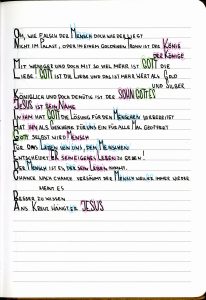 Oh, wie falsch der Mensch doch wieder liegt
Nicht im Palast, oder in einem goldenen Thron ist der König
der Könige
Mit weniger und doch mit so viel mehr ist GOTT die
Liebe! GOTT ist die Liebe und das ist mehr wert als Gold
und Silber
Königlich und doch demütig ist der SOHN GOTTES
JESUS ist sein Name
In ihm hat GOTT die Lösung für den Menschen vorbereitet
Hat ihn als Geschenk für uns ein für alle Mal geopfert
GOTT selbst wird Mensch
Für das Leben von uns, dem Menschen
Entscheidet ER sein eigenes Leben zu geben!
Der Mensch ist es, der sein Leben nimmt.
Chance nach Chance versäumt der Mensch weil er immer wieder
meint es
Besser zu wissen.
Am Kreuz hängt er, JESUS